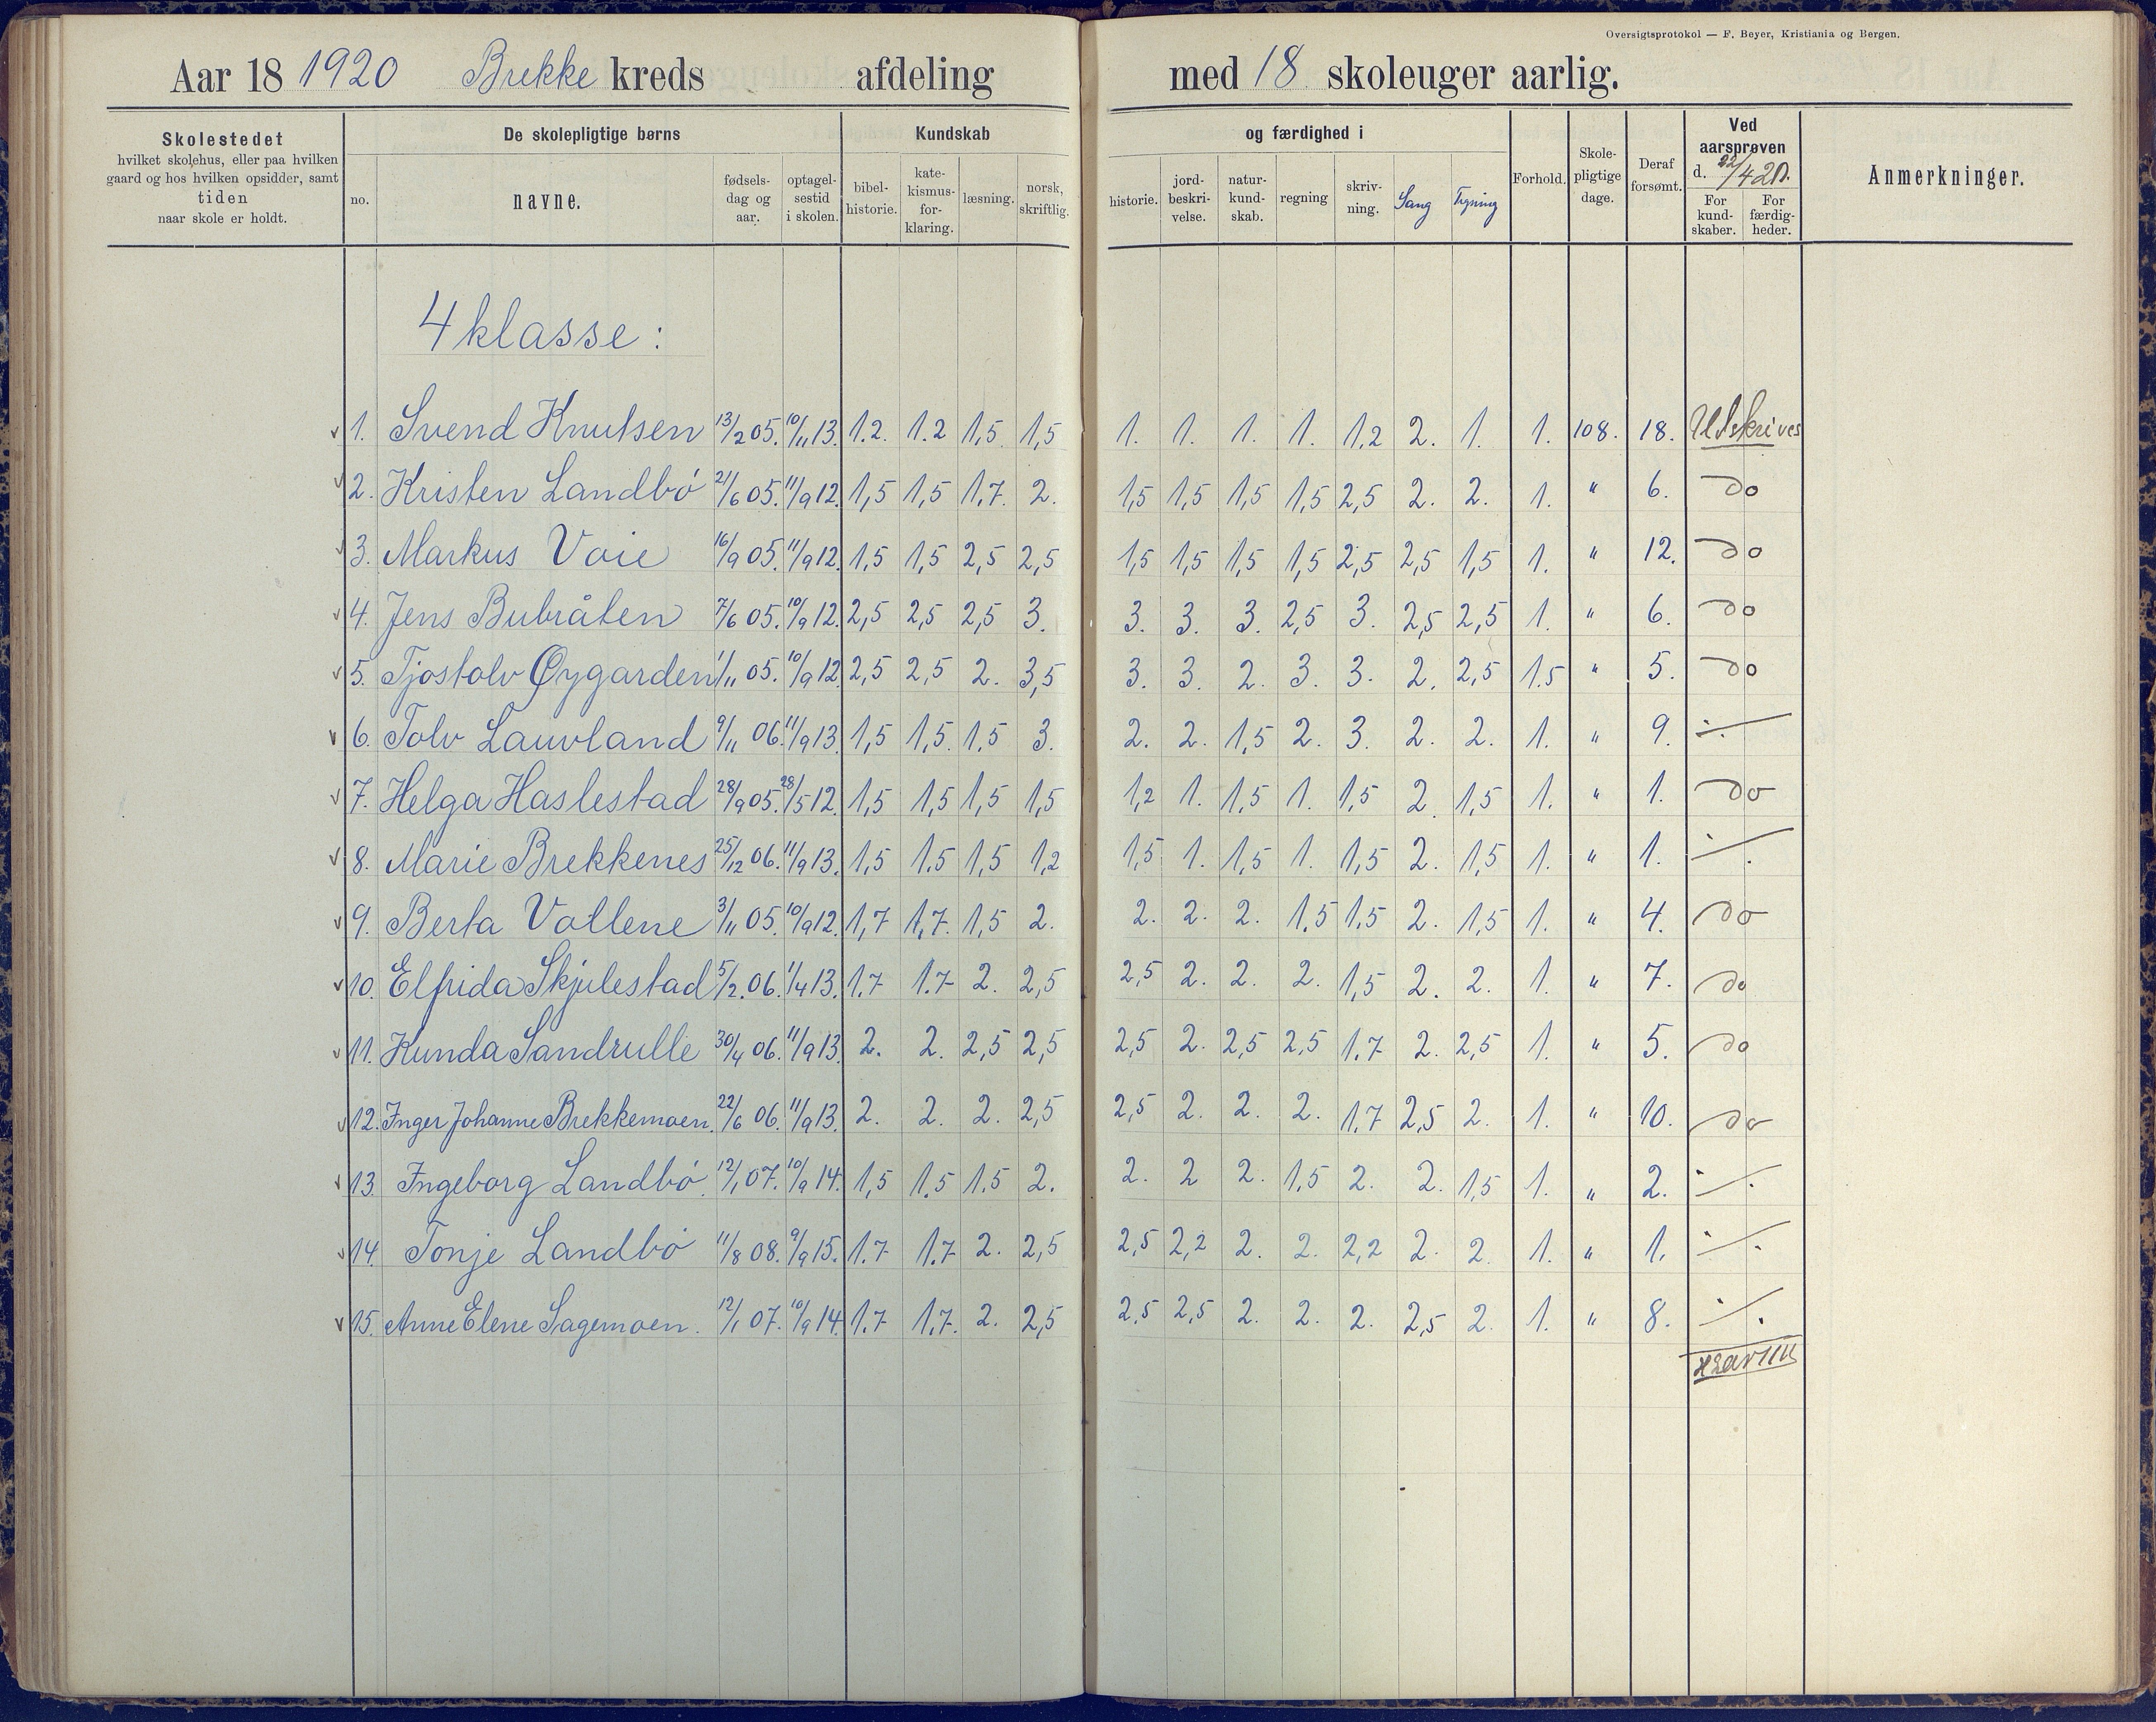 Oversigtsprotokol — F. Beyer, Kristiania og Bergen.
Aar 18 1920 Brekke kreds afdeling med 18 skoleuger aarlig.
Skolestedet hvilket skolehus, eller paa hvilken gaard og hos hvilken opsidder, samt tiden naar skole er holdt.
De skolepligtige børns
no. navne. fødsels-dag og aar. optagel-sestid i skolen.
Kundskab og færdighed i
bibel-historie. kate-kismus-for-klaring. læsning. norsk, skriftlig. historie. jord-beskri-velse. natur-kund-skab. regning skriv-ning. Sang Tegning
Forhold. Skole-pligtige dage. Deraf forsømt.
Ved aarsprøven d. 22/4 20.
For kund-skaber. For færdig-heder.
Anmerkninger.
4 klasse:
1. Svend Knutsen 13/2 05. 10/11 13. 1.2. 1.2 1,5 1,5 1. 1. 1. 1. 1,2 2. 1. 1. 108. 18. Udskrives
2. Kristen Landbø 21/6 05. 11/9 12. 1,5 1,5 1,7. 2. 1,5 1,5 1,5 1,5 2,5 2. 2. 1. " 6. do
3. Markus Voie 16/9 05. 11/9 12. 1,5 1,5 2,5 2,5 1,5 1,5 1,5 1,5 2,5 2,5 1,5 1. " 12. do
4. Jens Bubråten 7/6 05. 10/9 12. 2,5 2,5 2,5 3. 3. 3. 3. 2,5 3. 2,5 2,5 1. " 6. do
5. Tjostolv Øygarden 1/11 05. 10/9 12 2,5 2,5 2. 3,5 3. 3. 2. 3. 3. 2. 2,5 1.5 " 5. do
6. Tolv Lauvland 9/11 06. 11/9 13. 1,5 1,5. 1,5 3. 2. 2. 1,5 2. 3. 2. 2. 1. " 9. ./.
7. Helga Haslestad 28/9 05. 28/5 12. 1,5 1,5 1,5 1,5 1,2 1. 1,5 1. 1,5 2. 1,5 1. " 1. do
8. Marie Brekkenes 25/12 06. 11/9 13. 1,5 1.5 1,5 1,2 1,5 1. 1,5 1. 1,5 2. 1,5 1. " 1. ./.
9. Berta Vollene 3/11 05. 10/9 12. 1,7 1,7. 1,5 2. 2. 2. 2. 1,5 1,5 2. 1,5 1. " 4. do
10. Elfrida Skjulestad 5/2. 06. 1/4 13. 1.7 1.7 2. 2,5 2,5 2. 2. 2. 1,5 2. 2. 1. " 7. do
11. Kunda Sandrulle 30/4 06. 11/9 13. 2. 2. 2,5 2,5 2,5 2. 2,5 2,5 1.7 2. 2,5 1. " 5. do
12. Inger Johanne Brekkemoen. 22/6 06. 11/9 13. 2. 2. 2. 2,5 2,5 2. 2. 2. 1.7 2,5 2. 1. " 10. do
13. Ingeborg Landbø. 12/1 07. 10/9 14. 1,5 1.5 1.5 2. 2. 2 2. 1,5 2. 2. 1,5 1. " 2. ./.
14. Tonje Landbø 11/8 08. 9/9 15. 1.7 1.7 2. 2,5 2,5 2,2 2. 2. 2,2 2. 2. 1. " 1. ./.
15. Anne Elene Sagemoen. 12/1 07. 10/9 14. 1.7 1.7. 2. 2,5 2,5 2,5 2. 2. 2. 2,5 2. 1. " 8. ./.